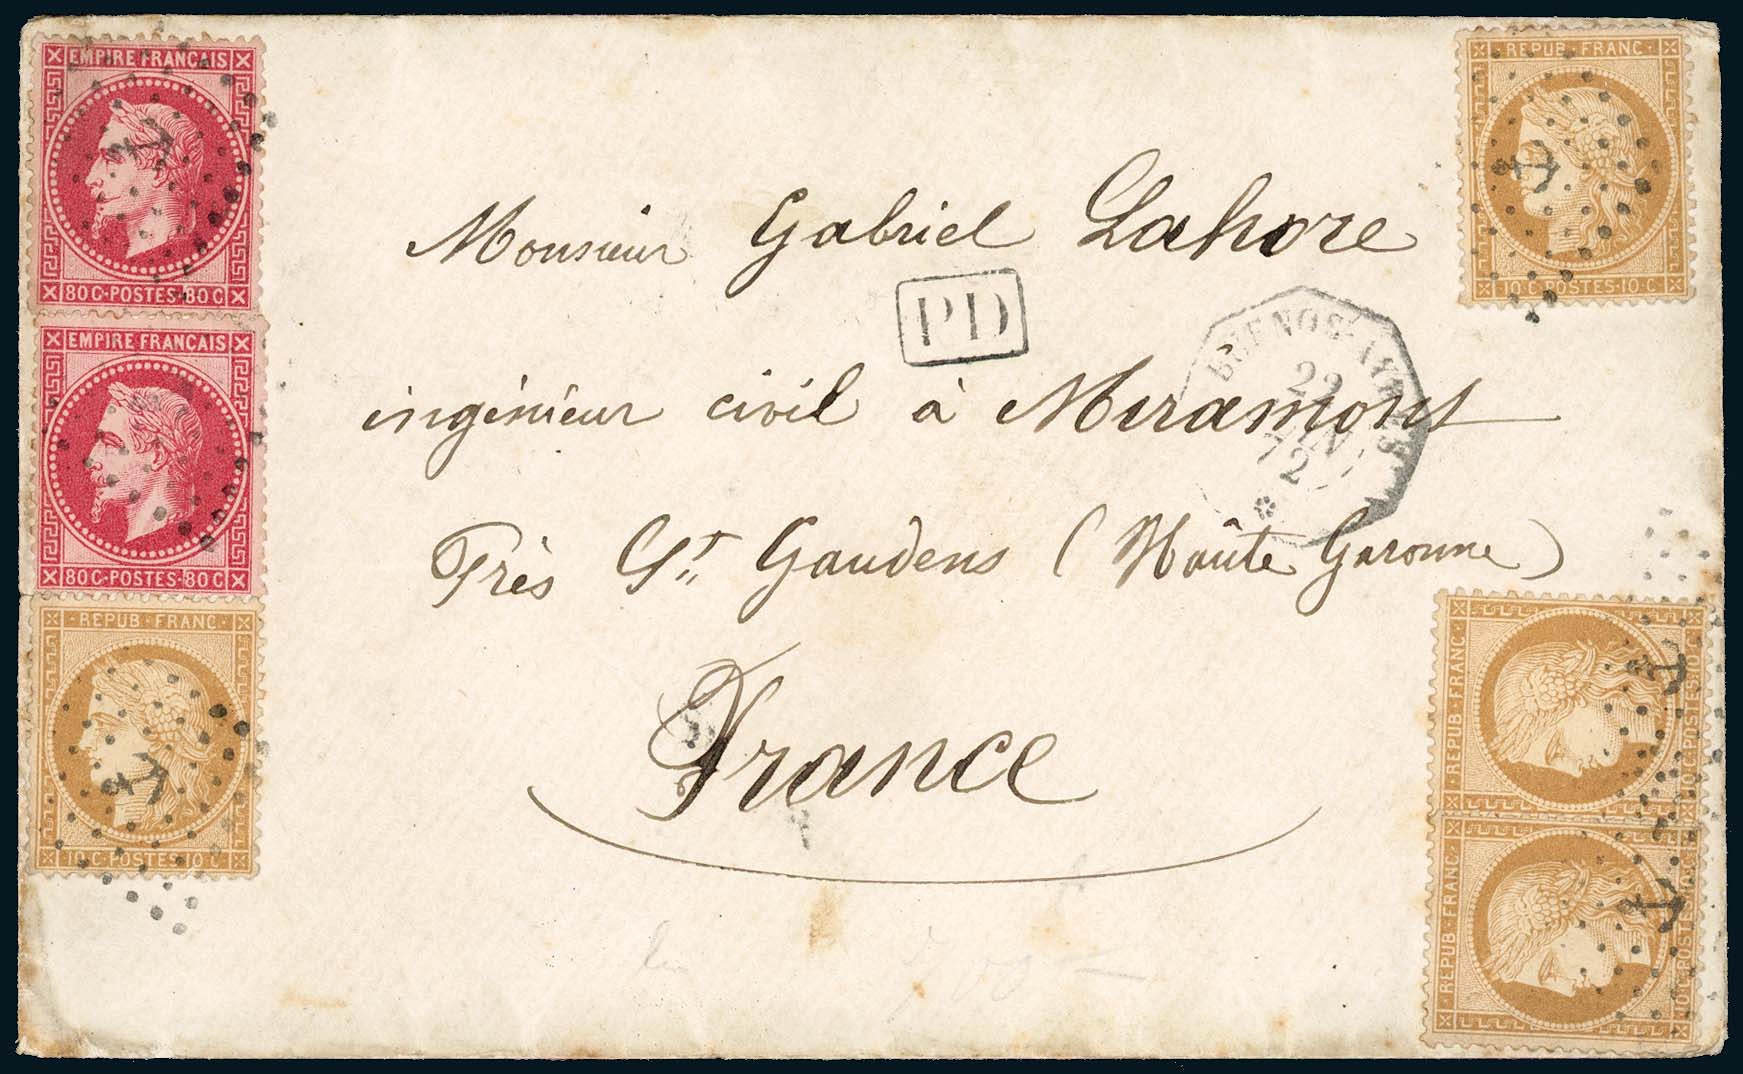 EMPIRE FRANÇAIS
80 C·POSTES·80 C
EMPIRE FRANÇAIS
80 C·POSTES·80 C
REPUB·FRANC·
10·C·POSTES·10·C
REPUB·FRANC·
10·C·POSTES·10·C
Monsieur Gabriel Lahore
PD
BUENOS-AYRES
29
JUIN
72
ingénieur civil à Miramont
Près St Gaudens (Haute Garonne)
France
REPUB·FRANC·
10·C·POSTES·10·C
REPUB·FRANC·
10·C·POSTES·10·C